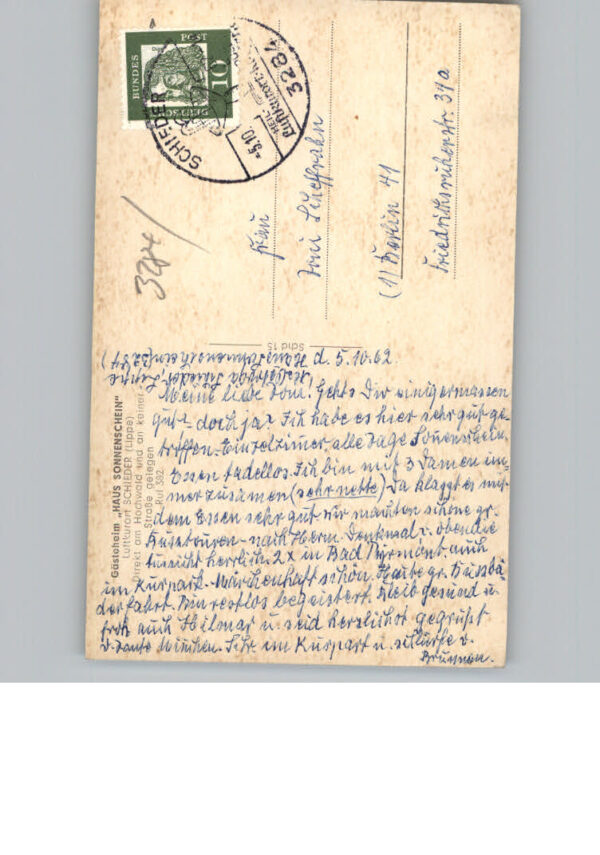 BUNDES
POST
10
SCHIEDER
-5.10.62
HEIL
Luftkurort
3284
3284
Frau
Toni Scheffrahn
(1) Berlin 41
Friedrichsruherstr. 39a
Schd 15
Gästeheim „HAUS SONNENSCHEIN"
Luftkurort SCHIEDER (Lippe)
Direkt am Hochwald und an keiner
Straße gelegen
Ruf 382
Haus Sonnenschein (3284)
Schieder, Lippe
d. 5.10.62.
Meine liebe Toni! Gehts Dir einigermassen
gut? - doch ja? Ich habe es hier sehr gut ge-
troffen. Einzelzimer alle Tage Sonnenschein.
Essen tadellos. Ich bin mit 3 Damen im-
mer zusamen (sehr nette) Da klappt es mit
dem Essen sehr gut. Wir machten schöne gr.
Busstouren - nach Herm. Denkmal v. oben die
Aussicht herrlich. 2x in Bad Pyrmont. auch
im Kurpark. Märchenhaft schön. Heute gr.
derfahrt. Bin restlos begeistert. Bleib gesund u.
froh auch Hilmar u. seid herzlichst gegrüßt
v. Tante Minchen. Sitze im Kurpark u. schlürfe v.
Brunnen.